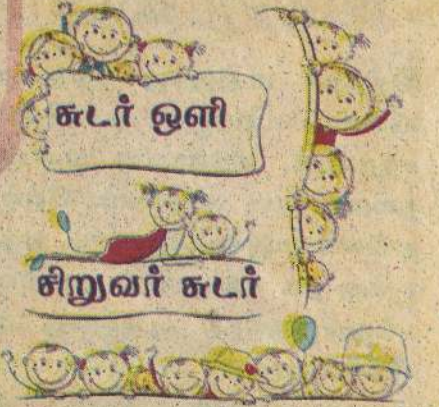 சுடர் ஒளி
சிறுவர் சுடர்